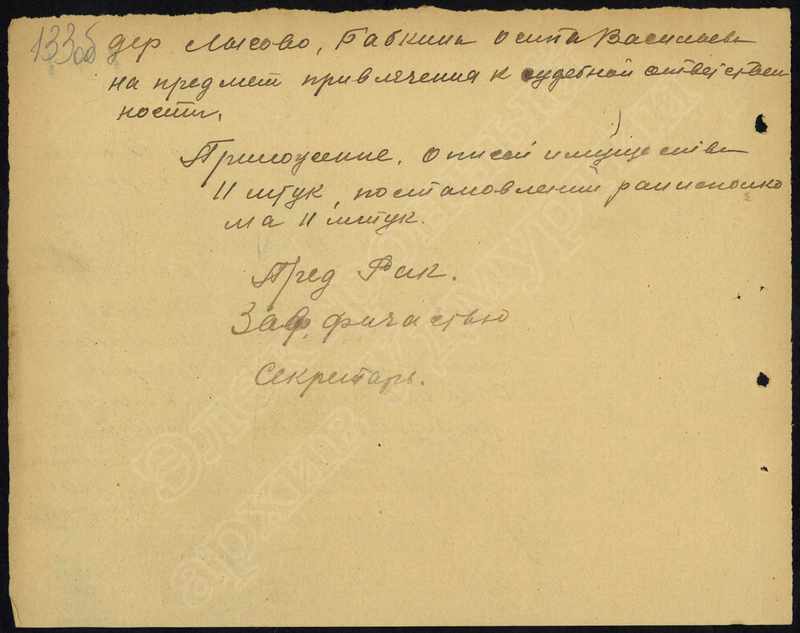 133об
дер Лысово, Бабкина Осипа Васильев
на предмет привлечения к судебной ответствен
ности.
Приложение. описей имущества
11 штук, постановлений райисполко
ма 11 штук.
Пред Рик.
Зав. финчастью
Секретарь.